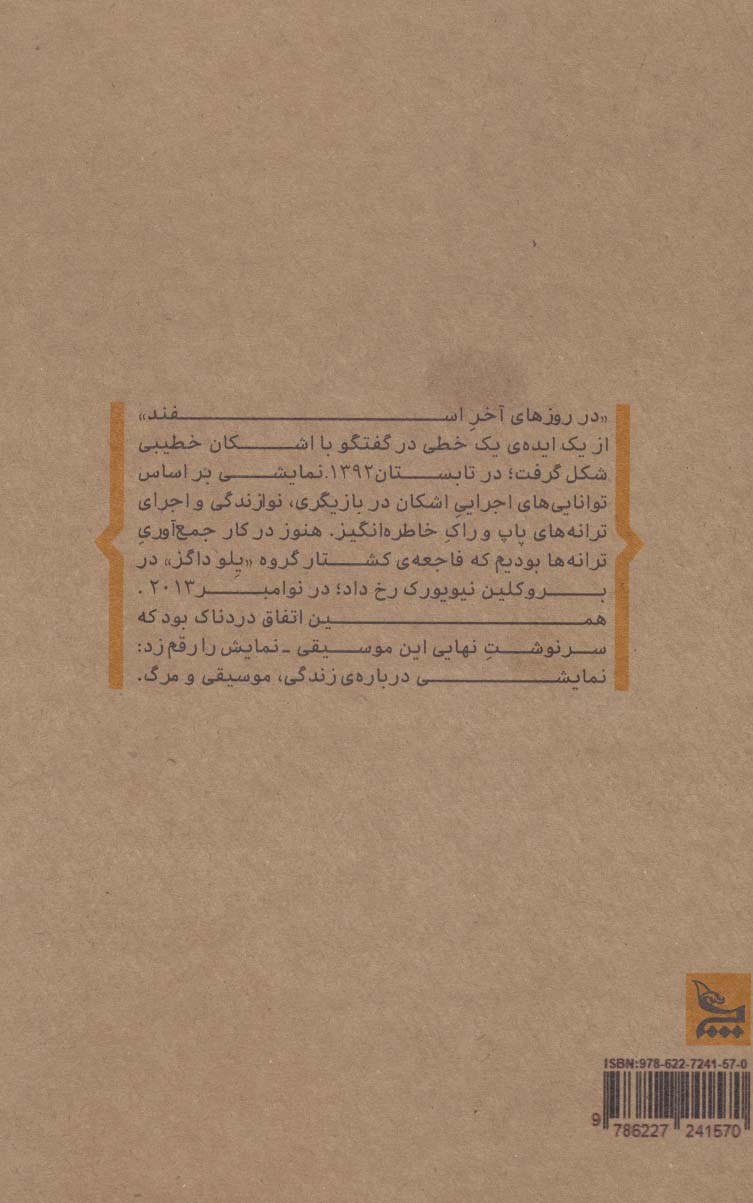 «در روزهای آخرِ اســـــــــــفند»
از یک ایده‌ی یک خطی در گفتگو با اشـــکان خطیبی
شکل گرفت؛ در تابســـتان۱۳۹۲.نمایشـــی بر اساس
توانایی‌های اجراییِ اشکان در بازیگری، نوازندگی و اجرای
ترانه‌های پاپ و راکِ خاطره‌انگیز. هنوز در کار جمع‌آوریِ
ترانه‌ها بودیم که فاجعه‌ی کشـــتار گروه «یِلو داگز» در
بـــروکلین نیویورک رخ داد؛ در نوامبـــر۲۰۱۳ .
همـــــــــــین اتفاق دردناک بود که
ســرنوشــتِ نهایی این موســیقی - نمایش را رقم زد:
نمایشـــــــی درباره‌ی زندگی، موسیقی و مرگ.
ISBN:978-622-7241-57-0
9 786227 241570